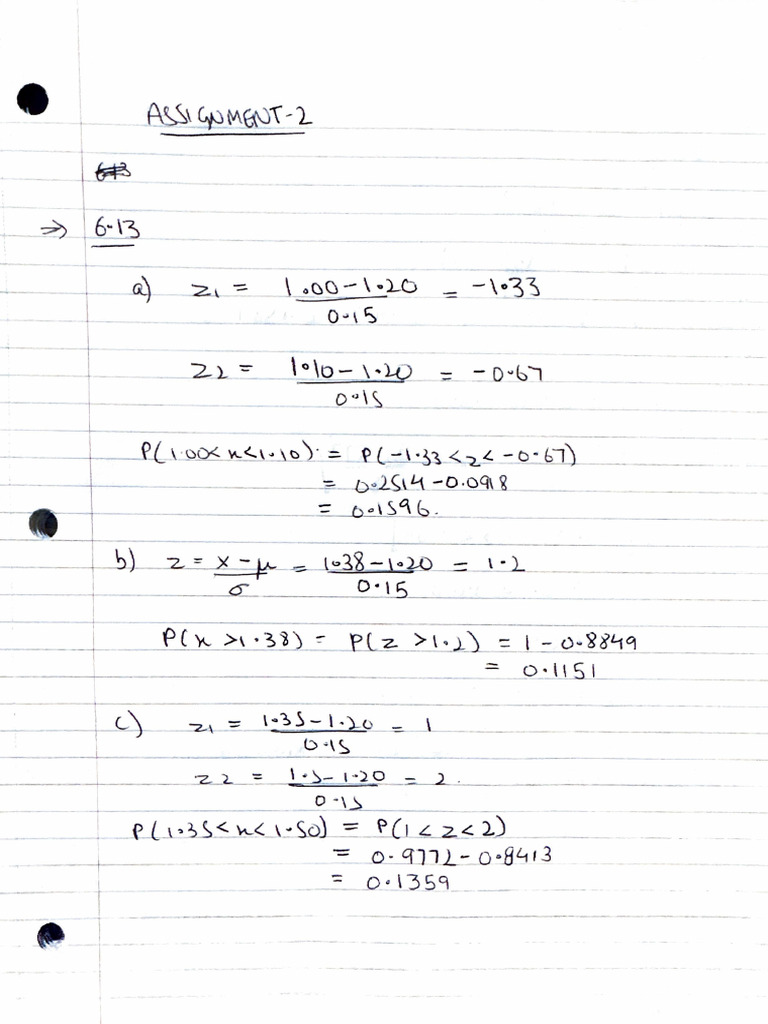 ASSIGNMENT-2
6.13
⇒ 6.13
a) z1 = (1.00-1.20)/0.15 = -1.33
z2 = (1.10-1.20)/0.15 = -0.67
P(1.00<x<1.10) = P(-1.33<z<-0.67)
= 0.2514-0.0918
= 0.1596.
b) z = (x-μ)/σ = (1.38-1.20)/0.15 = 1.2
P(x >1.38) = P(z >1.2) = 1-0.8849
= 0.1151
c) z1 = (1.35-1.20)/0.15 = 1
z2 = (1.5-1.20)/0.15 = 2.
P(1.35<x<1.50) = P(1<z<2)
= 0.9772-0.8413
= 0.1359